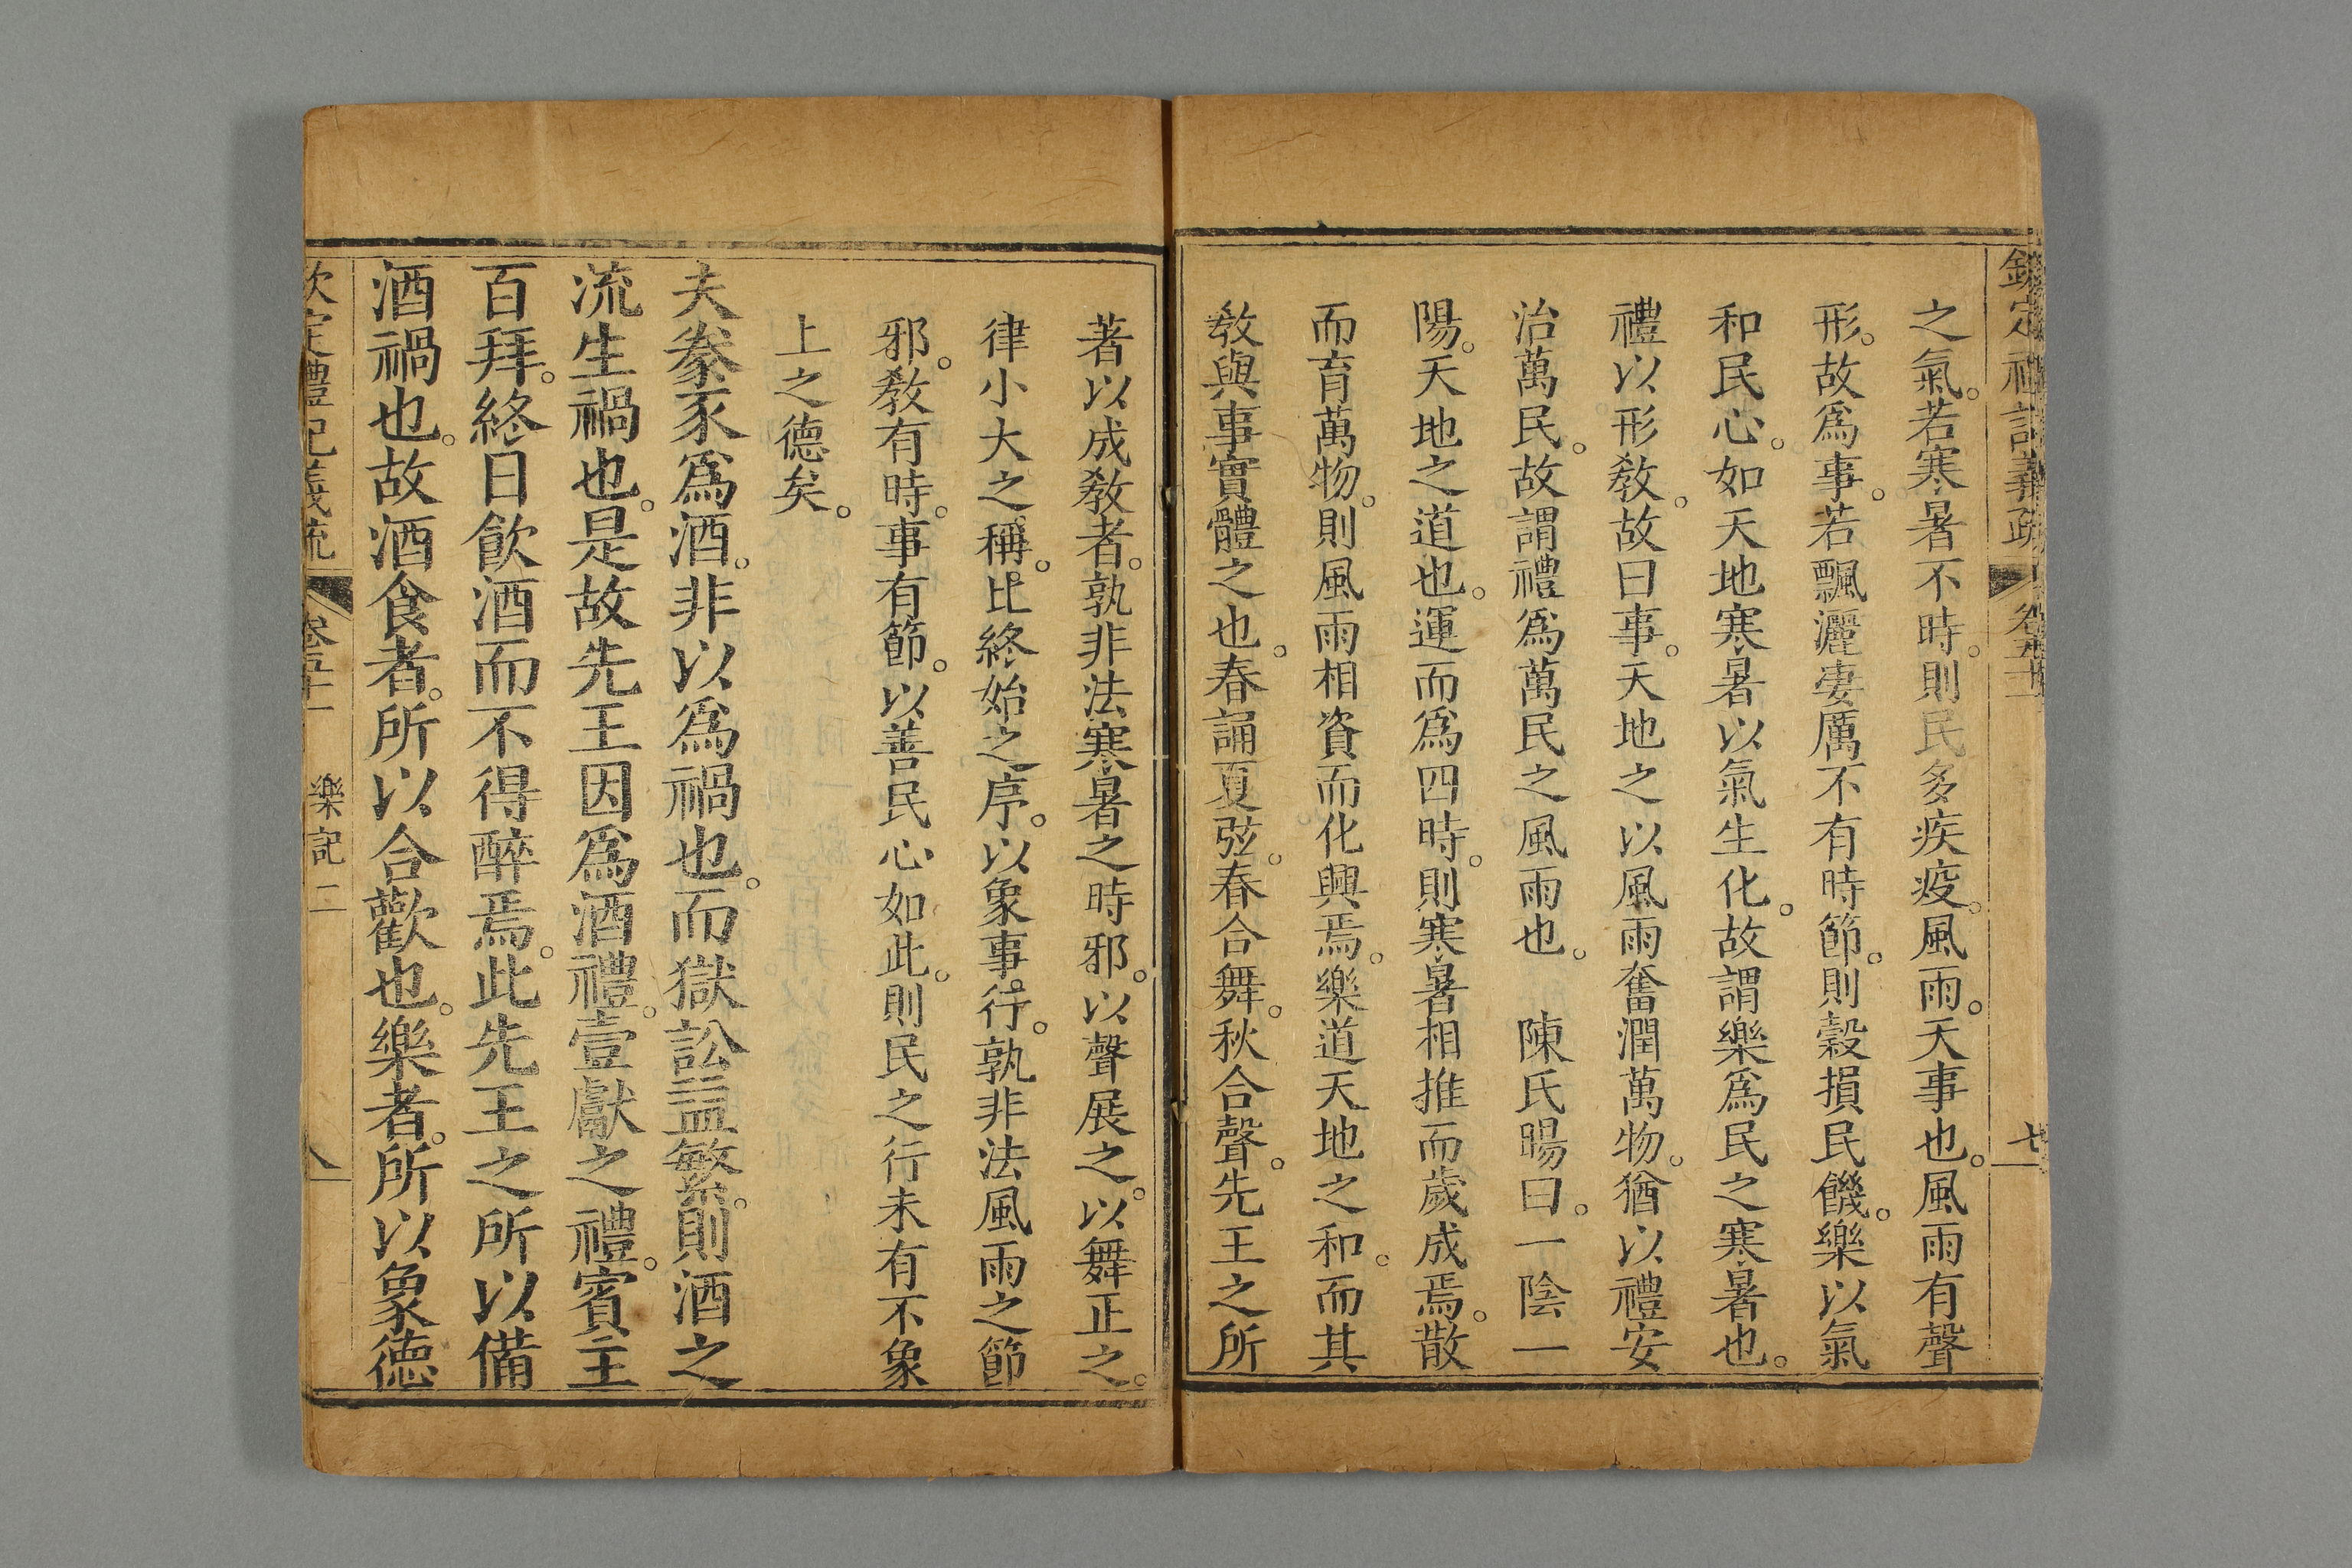 欽定禮記義疏 卷五十一 七
之氣。若寒暑不時。則民多疾疫。風雨。天事也。風雨有聲
形。故爲事。若飄灑凄厲不有時節。則穀損民饑。樂以氣
和民心。如天地寒暑以氣生化。故謂樂爲民之寒暑也。
禮以形敎。故曰事。天地之以風雨奮潤萬物。猶以禮安
治萬民。故謂禮爲萬民之風雨也。 陳氏暘曰。一陰一
陽。天地之道也。運而爲四時。則寒暑相推而歲成焉。散
而育萬物。則風雨相資而化興焉。樂道天地之和。而其
敎與事實體之也。春誦夏弦。春合舞。秋合聲。先王之所
著以成敎者。孰非法寒暑之時邪。以聲展之。以舞正之。
律小大之稱。比終始之序。以象事行。孰非法風雨之節
邪。敎有時。事有節。以善民心如此。則民之行未有不象
上之德矣。
夫豢豕爲酒。非以爲禍也。而獄訟益繁。則酒之
流生禍也。是故先王因爲酒禮。壹獻之禮。賓主
百拜。終日飮酒而不得醉焉。此先王之所以備
酒禍也。故酒食者。所以合歡也。樂者。所以象德
欽定禮記義疏 卷五十一 樂記二 八